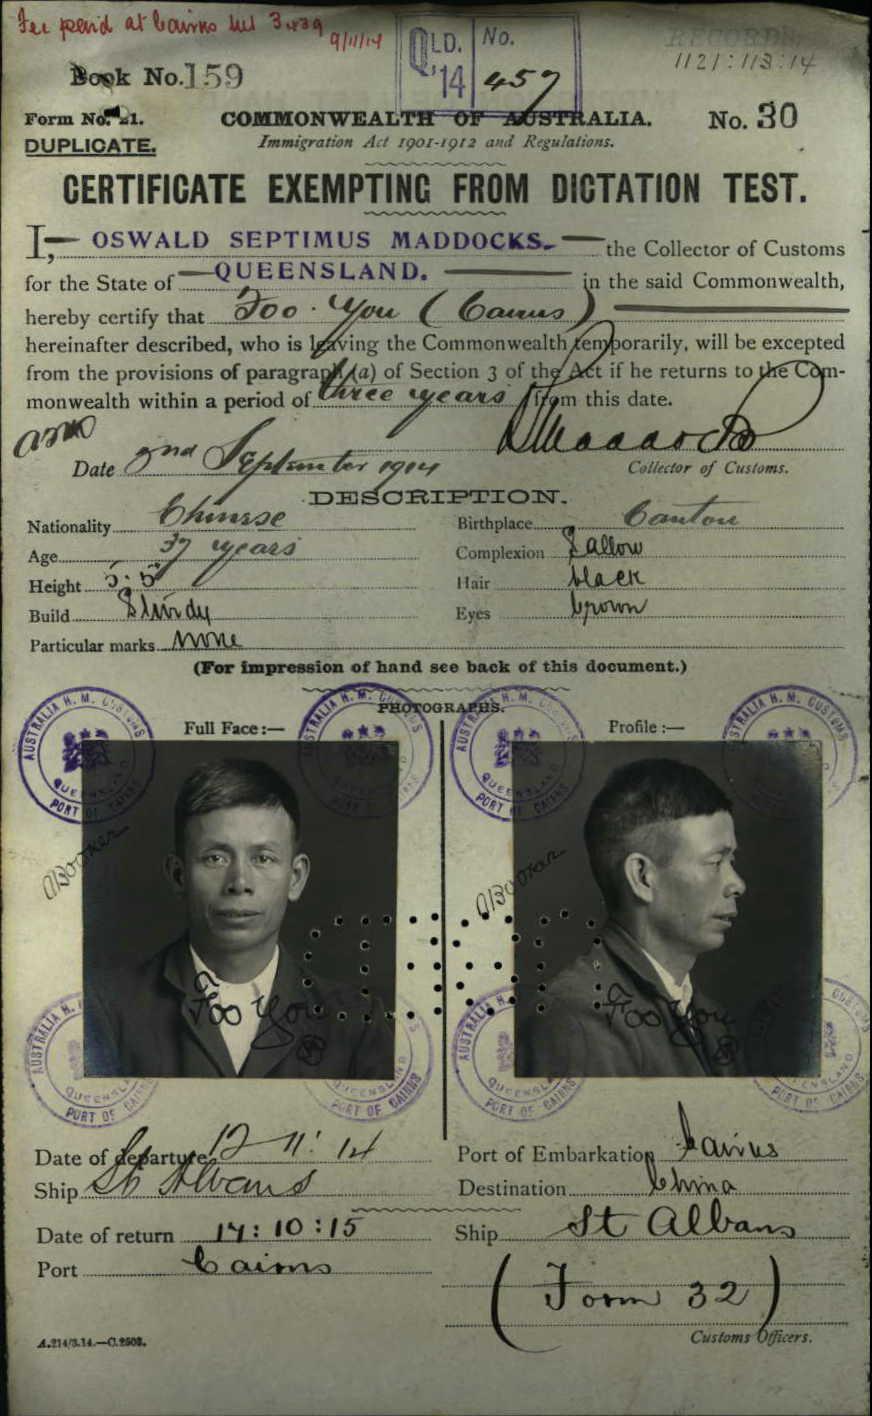 Fee paid at Cairns
9/11/14
QLD. '14 No. 457
RECORDS
1121:113:14
Book No. 159
Form No. 21.
COMMONWEALTH OF AUSTRALIA.
No. 30
DUPLICATE.
Immigration Act 1901-1912 and Regulations.
CERTIFICATE EXEMPTING FROM DICTATION TEST.
I,— OSWALD SEPTIMUS MADDOCKS.— the Collector of Customs
for the State of —QUEENSLAND.— in the said Commonwealth,
hereby certify that Foo You (Cairns)
hereinafter described, who is leaving the Commonwealth temporarily, will be excepted
from the provisions of paragraph (a) of Section 3 of the Act if he returns to the Com-
monwealth within a period of three years from this date.
OSMaddocks
Date 2nd September 1914
Collector of Customs.
DESCRIPTION.
Nationality Chinese Birthplace Canton
Age 37 years Complexion Sallow
Height 5:5 Hair black
Build Sturdy Eyes brown
Particular marks none
(For impression of hand see back of this document.)
PHOTOGRAPHS.
Full Face:— Profile:—
AUSTRALIA H.M. CUSTOMS QUEENSLAND PORT OF CAIRNS
AUSTRALIA H.M. CUSTOMS QUEENSLAND PORT OF CAIRNS
AUSTRALIA H.M. CUSTOMS QUEENSLAND PORT OF CAIRNS
AUSTRALIA H.M. CUSTOMS
Foo You
Foo You
AUSTRALIA H. QUEENSLAND PORT OF CAIRNS
QUEENSLAND PORT OF CAIRNS
AUSTRALIA H.M. QUEENSLAND PORT OF CAIRNS
CUSTOMS QUEENSLAND PORT OF CAIRNS
Date of departure 12 11: 14 Port of Embarkation Cairns
Ship St Albans Destination China
Date of return 14:10:15 Ship St Albans
Port Cairns
(Form 32)
A.214/3.14.—C.2503.
Customs Officers.